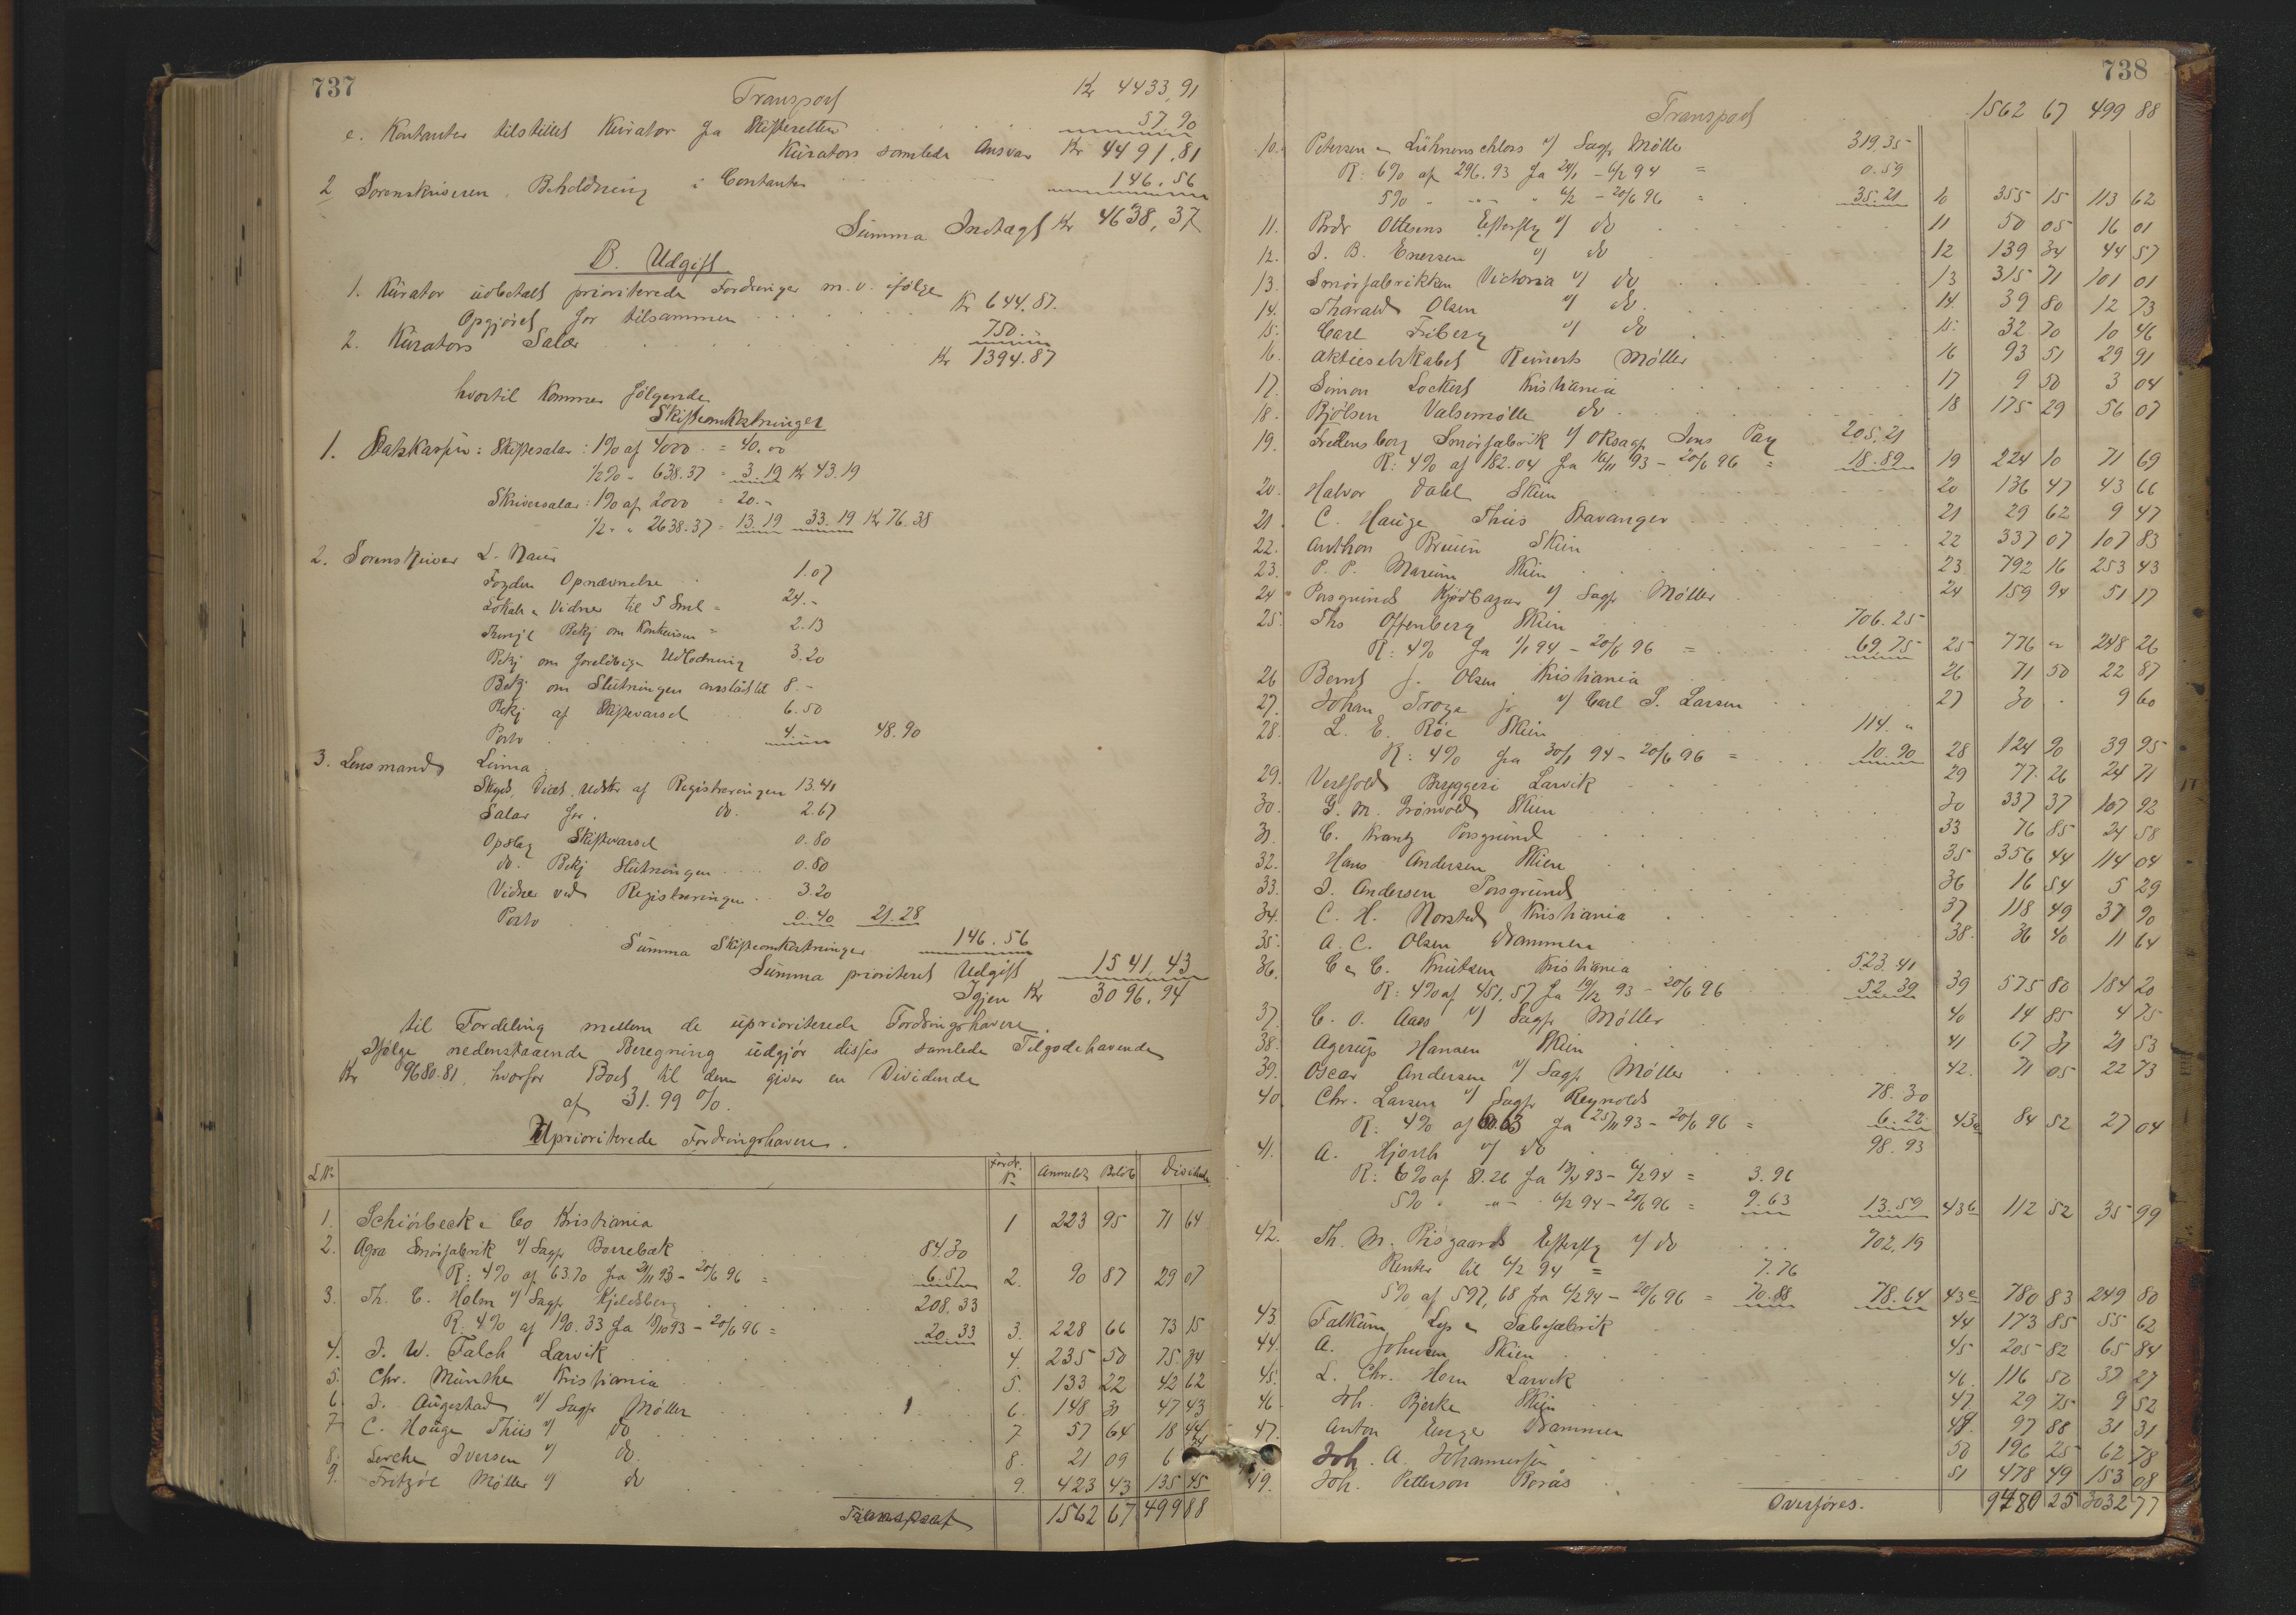 737
Transport Kr 4433,91
e. Kontanter tilstillet Kurator fra Skifteretten 57.90
Kurators samlede Ansvar Kr 4491.81
2 Sorenskriveren, Beholdning i Contanter 146.56
Summa Indtægt Kr 4638,37
B. Udgift
1. Kurator udbetalt prioriterede Fordringer m.v. ifølge
Opgjøret for tilsammen Kr 644.87.
2. Kurators Salær 750.-
Kr 1394.87
hvortil kommer følgende
Skifteomkostninger
1. Statskassen: Skiftesalær: 1% af 4000 = 40.00
1/2% - 638.37 = 3.19 Kr 43.19
Skriversalær: 1% af 2000 = 20.-
1/2 - " 2638.37 = 13.19 33.19 Kr 76.38
2. Sorenskriver L. Naur
Fogden Opnævnelse 1.07
Lokale & Vidner til 5 Saml = 24.-
Bekj om Konkursen = 2.13
Bekj om foreløbige Udlodning 3.20
Bekj om Slutningen anslået til 8.-
Bekj af Skiftevarsel 6.50
Porto 4.- 48.90
3. Lensmand Linna
Skyds, Diæt, Udskr af Registreringen 13.41
Salær for. do. 2.67
Opslag Skiftevarsel 0.80
do. Bekj Slutningen 0.80
Vidner ved Registreringen 3.20
Porto 0.40 21.28
Summa Skifteomkostninger 146.56
Summa prioriteret Udgift 1541,43
Igjen Kr 3096,94
til Fordeling mellem de uprioriterede Fordringshavere.
Ifølge nedenstaaende Beregning udgjør disses samlede Tilgodehavende
Kr 9680.81, hvorfor Boet til dem giver en Dividende
af 31.99 %.
Uprioriterede Fordringshavere.
L.No Fordr. No Anmeldt Beløb Dividende
1. Schiørbeck & Co Kristiania 1 223 95 71 64
2. Agra Smørfabrik v/ Sagf Borrebæk 84.30
R: 4% af 63.70 fra 21/11 93 - 20/6 96 = 6.57 2. 90 87 29 07
3. Th. C. Holm v/ Sagf Kjeldsberg 208.33
R. 4% af 190.33 fra 19/10 93 - 20/6 96 = 20.33 3. 228 66 73 15
4. J. W. Falch Larvik 4. 235 50 75 34
5. Chr. Münther Kristiania 5. 133 22 42 62
6. J. Augestad v/ Sagf Møller 6. 148 31 47 43
7 C. Houge Thiis v/ do 7 57 64 18 44
8. Lerche Iversen v/ do. 8. 21 09 6
9. Fritzøe Møller v/ do 9. 423 43 135 45
Transport 1562 67 499 88
738
Transport 1562 67 499 88
10. Petersen & Lührenschloss v/ Sagf Møller 319.35
R: 6% af 296.93 fra 24/1 - 6/2 94 = 0.59
5% - - " 6/2 - 20/6 96 = 35.21 10 355 15 113 62
11. Brdr Ottesens Efterflg v/ do 11 50 05 16 01
12. J. B. Enersen v/ do 12 139 34 44 57
13. Smørfabrikken Victoria v/ do 13 315 71 101 01
14. Tharald Olsen v/ do. 14. 39 80 12 73
15. Carl Friberg v/ do 15. 32 70 10 46
16. Aktieselskabet Reinerts Møller 16 93 51 29 91
17. Simon Lockert Kristiania 17 9 50 3 04
18. Bjølsen Valsemølle do 18 175 29 56 07
19. Fredensborg Smørfabrik v/ ORsagf Jens Pay 205.21
R: 4% af 182.04 fra 16/11 93 - 20/6 96 = 18.89 19 224 10 71 69
20. Halvor Dahl Skien 20 136 47 43 66
21. C. Hauge Thiis Stavanger 21 29 62 9 47
22. Anthon Bruun Skien 22 337 07 107 83
23. P. P. Marum Skien 23 792 16 253 43
24 Porsgrunds Kjødbazar v/ Sagf Møller 24 159 94 51 17
25. Ths Offenberg Skien 706.25
R: 4% fra 1/1 94 - 20/6 96 = 69.75 25 776 " 248 26
26 Bernt J. Olsen Kristiania 26 71 50 22 87
27. Johan Troye jr v/ Carl S. Larsen 27 30 - 9 60
28. L. E. Röe Skien 114. "
R: 4% fra 30/1 94 - 20/6 96 = 10.90 28 124 90 39 95
29. Vestfold Bryggeri Larvik 29 77 26 24 71
30. G. M. Grönvold Skien 30 337 37 107 92
31. C. Krantz Porsgrund 33 76 85 24 58
32. Hans Andersen Skien 35 356 44 114 04
33. J. Andersen Porsgrund 36 16 54 5 29
34. C. H. Norsted Kristiania 37 118 49 37 90
35. A. C. Olsen Drammen 38. 36 40 11 64
36. C & C. Knutsen Kristiania 523.41
R: 4% af 451.57 fra 19/12 93 - 20/6 96 52.39 39 575 80 184 20
37. C. O. Aas v/ Sagf Møller 40 14 85 4 75
38. Agerup Hansen Skien 41 67 31 21 53
39. Oscar Andersen v/ Sagf Møller 42. 71 05 22 73
40. Chr. Larsen v/ Sagf Reynolds 78.30
R: 4% af 60.63 fra 25/11 93 - 20/6 96 = 6.22 43a 84 52 27 04
41. A. Hjorth v/ do 98.93
R: 6% af 81.26 fra 13/4 93 - 6/2 94 = 3.96
5% - " - 6/2 94 - 20/6 96 = 9.63 13.59 43b 112 52 35 99
42. Th. M. Risgaards Efterflg v/ do 702,19
Renter til 6/2 94 = 7.76
5% af 597,68 fra 6/2 94 - 20/6 96 = 70.88 78.64 43c 780 83 249 80
43 Falkum Lys & Sæbefabrik 44 173 85 55 62
44. A. Johnsen Skien 45 205 82 65 84
45. L. Chr. Horn Larvik 46. 116 50 37 27
46 Joh. Bjerke Skien 47 29 75 9 52
47. Anton Unge Drammen 49. 97 88 31 31
Joh. A. Johannessen 50 196 25 62 78
49. Joh. Petterson Borås 51 478 49 153 08
Overføres. 9480 25 3032 77